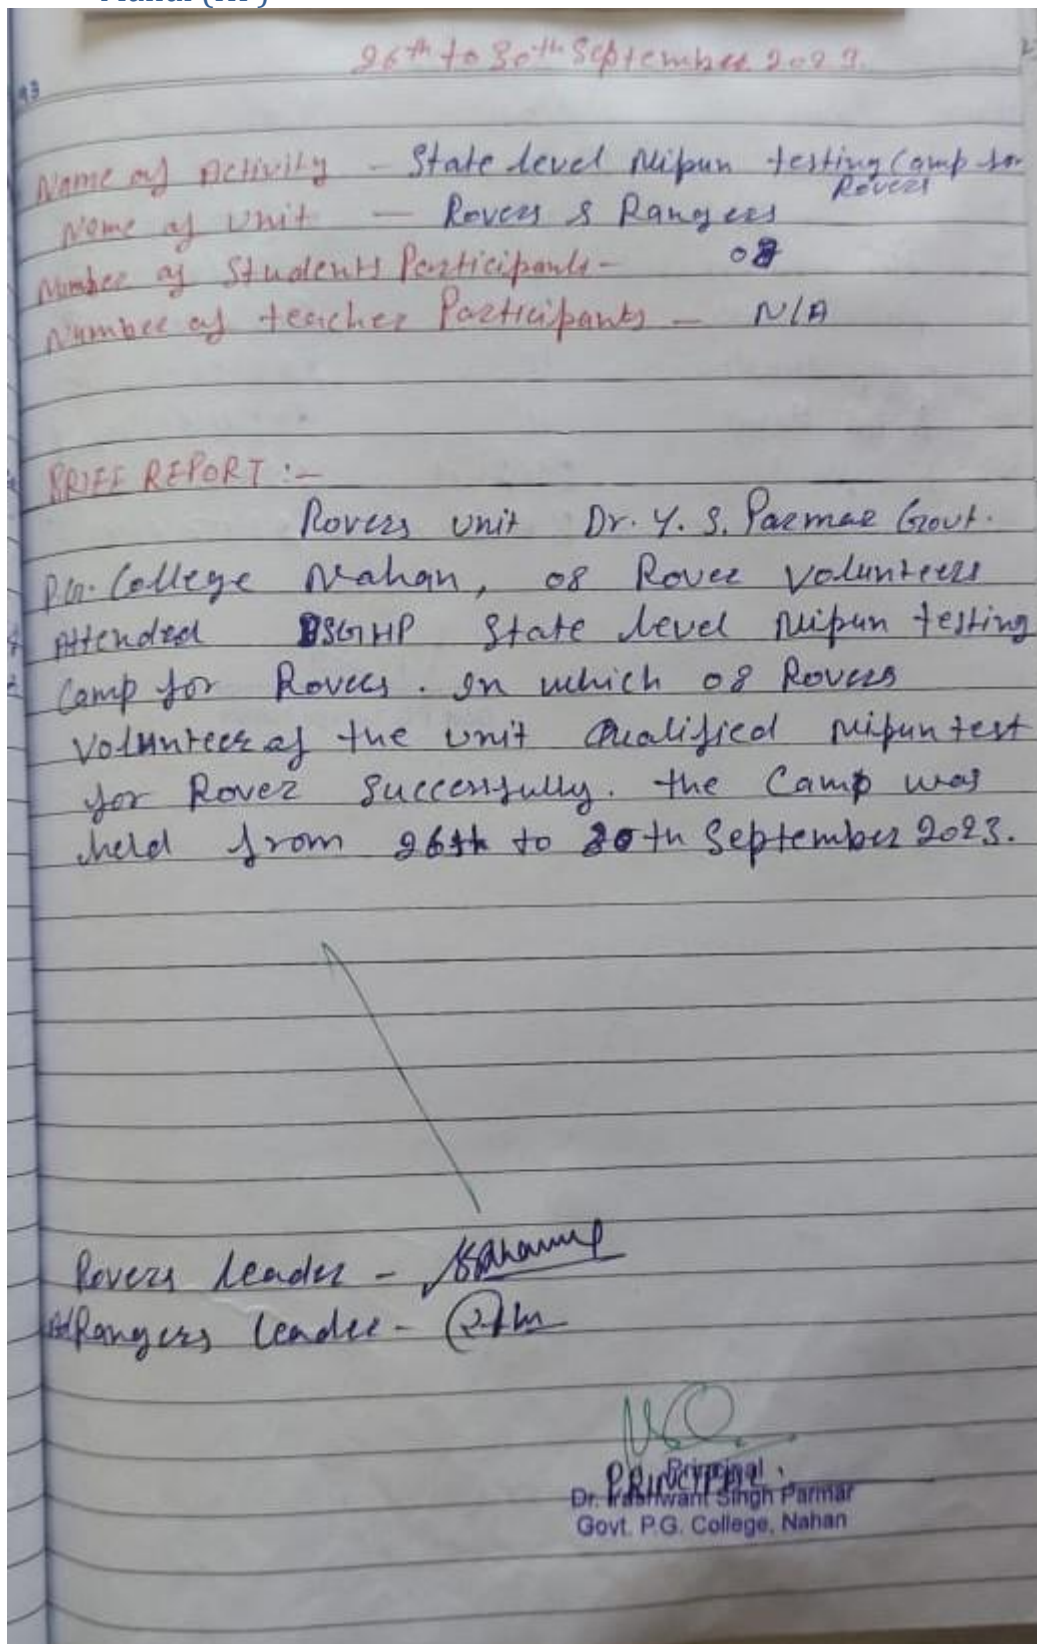 26th to 30th September 2023.
Name of Activity - State level Nipun testing Camp for
Rovers
Name of Unit - Rovers & Rangers
Number of Students Participants - 08
Number of teacher Participants - N/A
BRIEF REPORT :-
Rovers unit Dr. Y. S. Parmar Govt.
P.G. College Nahan, 08 Rover Volunteers
Attended BSGHP State level Nipun testing
Camp for Rovers. In which 08 Rovers
Volunteer of the Unit Qualified Nipun test
for Rover Successfully. the Camp was
held from 26th to 30th September 2023.
Rovers Leader -
Rangers Leader -
PRINCIPAL
Principal
Dr. Yashwant Singh Parmar
Govt. P.G. College, Nahan